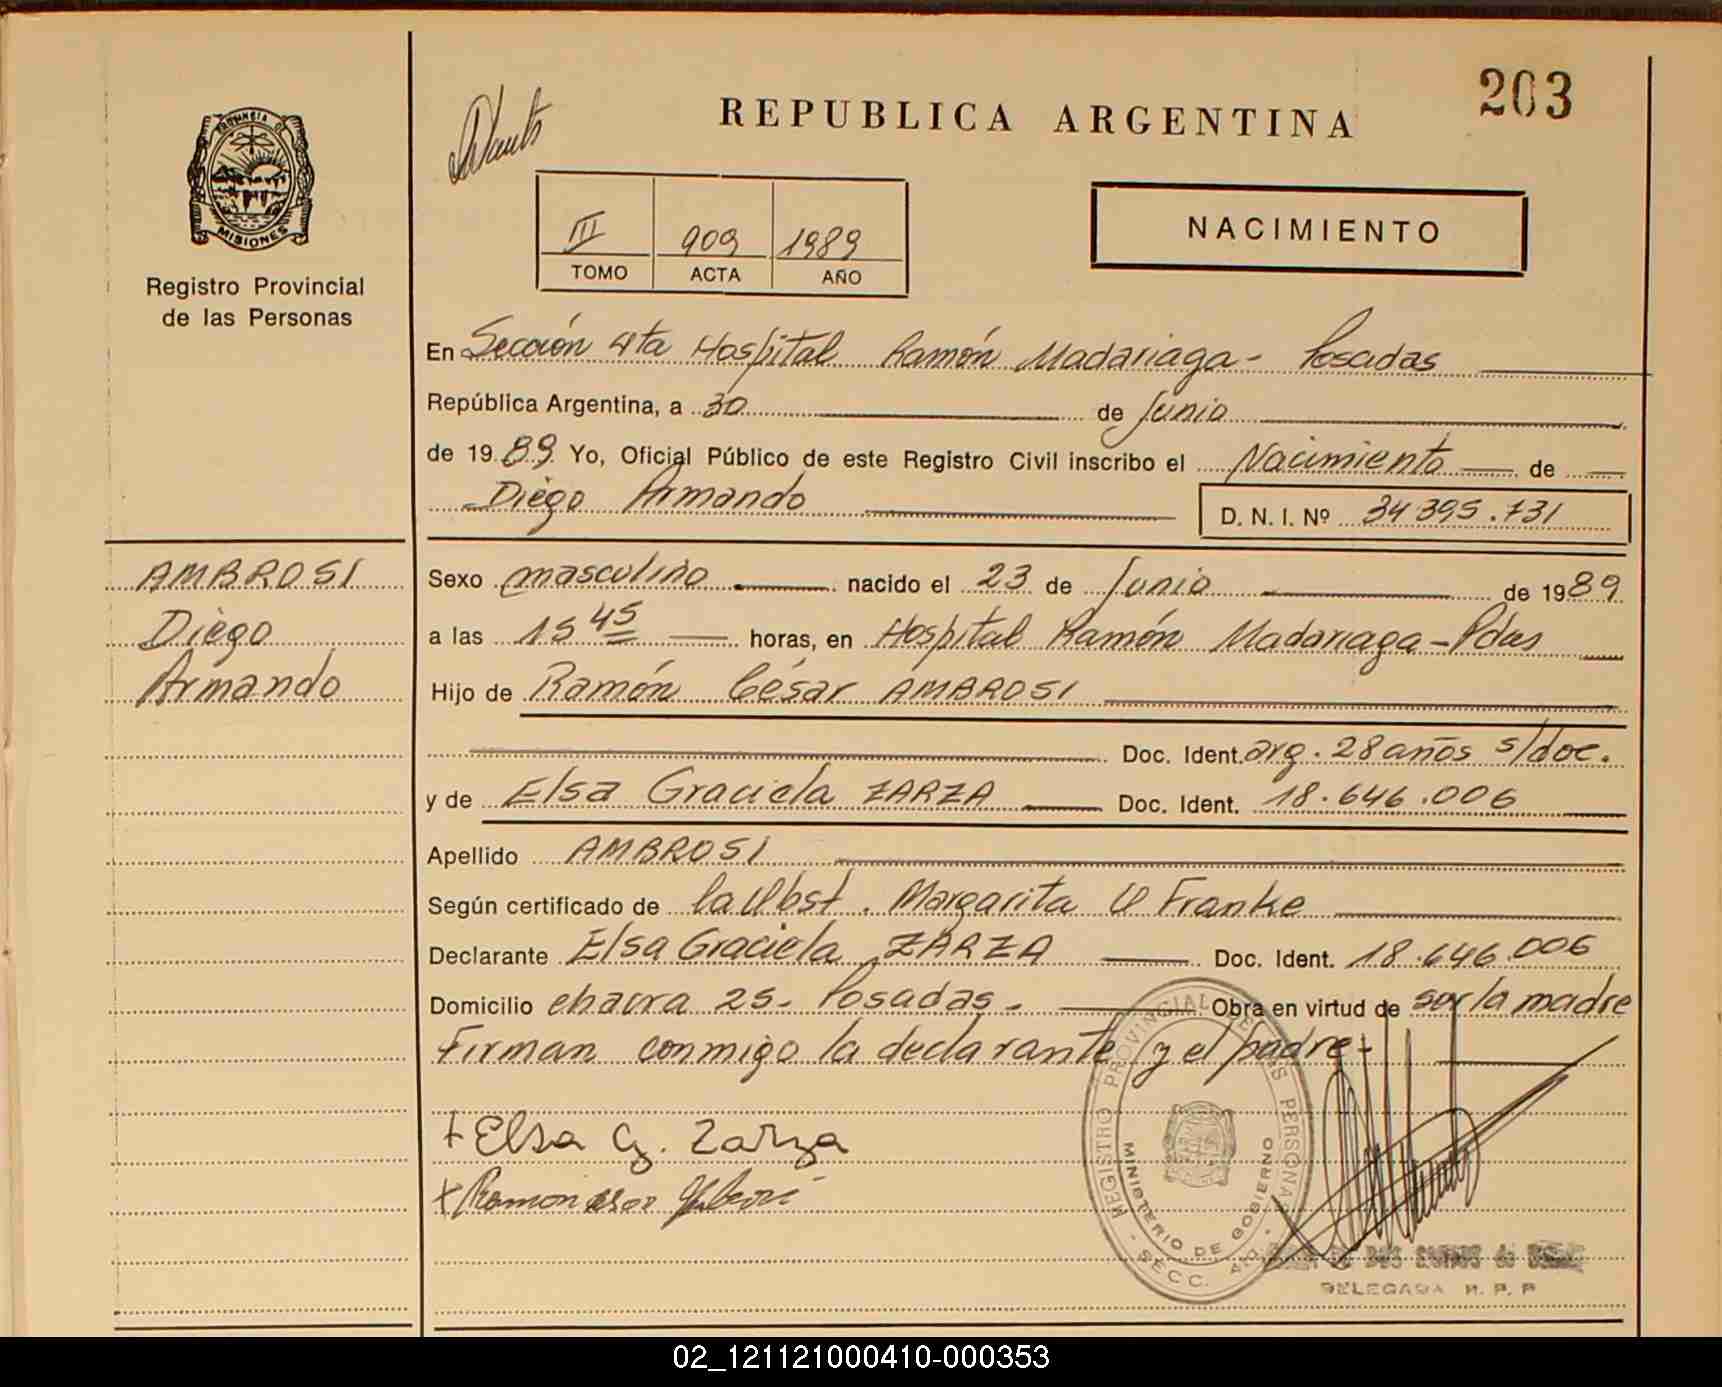 203
REPUBLICA ARGENTINA
PROVINCIA DE
MISIONES
Registro Provincial
de las Personas
III 909 1989
TOMO ACTA AÑO
NACIMIENTO
En Sección 4ta Hospital Ramón Madariaga - Posadas
República Argentina, a 30 de Junio
de 1989 Yo, Oficial Público de este Registro Civil inscribo el Nacimiento de
Diego Armando D. N. I. Nº 34 395.731
AMBROSI
Diego
Armando
Sexo masculino nacido el 23 de Junio de 1989
a las 15 45 horas, en Hospital Ramón Madariaga - Pdas
Hijo de Ramón César AMBROSI
Doc. Ident. arg. 28 años s/doc.
y de Elsa Graciela ZARZA Doc. Ident. 18.646.006
Apellido AMBROSI
Según certificado de la Obst. Margarita O Franke
Declarante Elsa Graciela ZARZA Doc. Ident. 18.646.006
Domicilio chacra 25 - Posadas - Obra en virtud de ser la madre
Firman conmigo la declarante y el padre -
+ Elsa G. Zarza
x Ramon
REGISTRO PROVINCIAL DE LAS PERSONAS
MINISTERIO DE GOBIERNO
SECC. 4
DELEGADA R. P. P
02_121121000410-000353